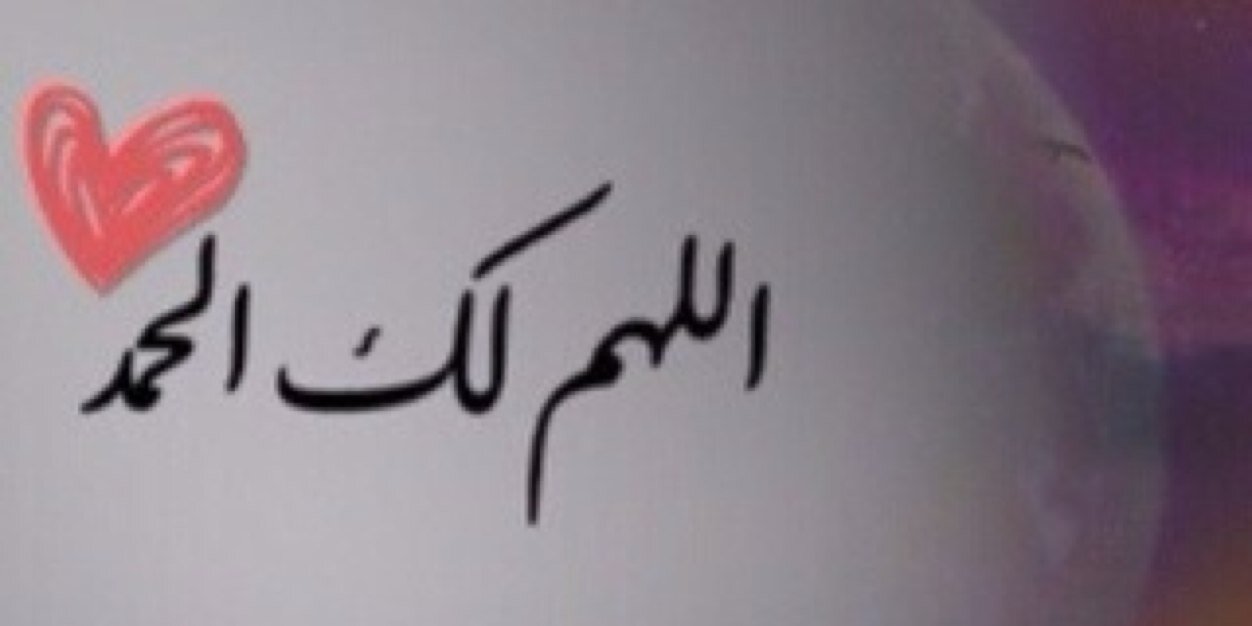 اللهم لك الحمد